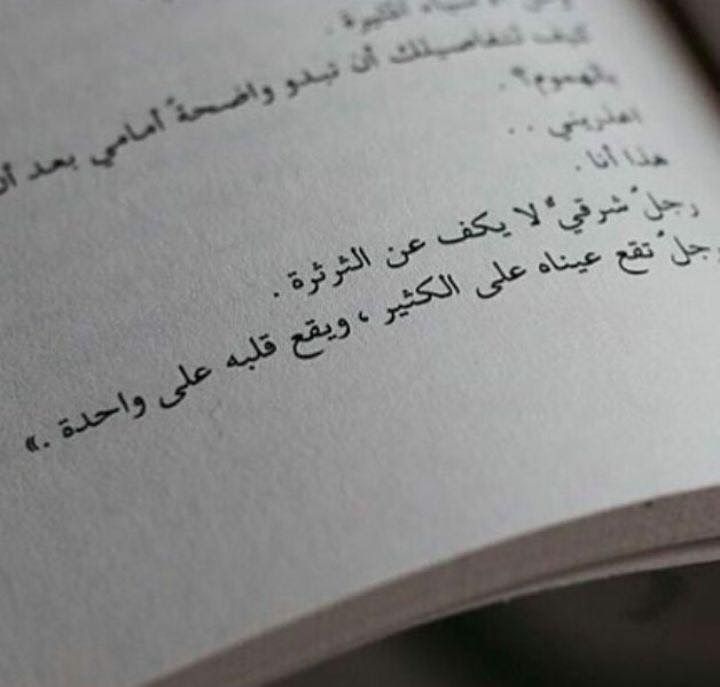 المثيرة .
كيف لتفاصيلك أن تبدو واضحةً أمامي بعد أن
بالهموم؟ .
اعذريني ..
هذا أنا .
رجلٌ شرقيٌ لا يكف عن الثرثرة .
رجلٌ تقع عيناه على الكثير ، ويقع قلبه على واحدة .»